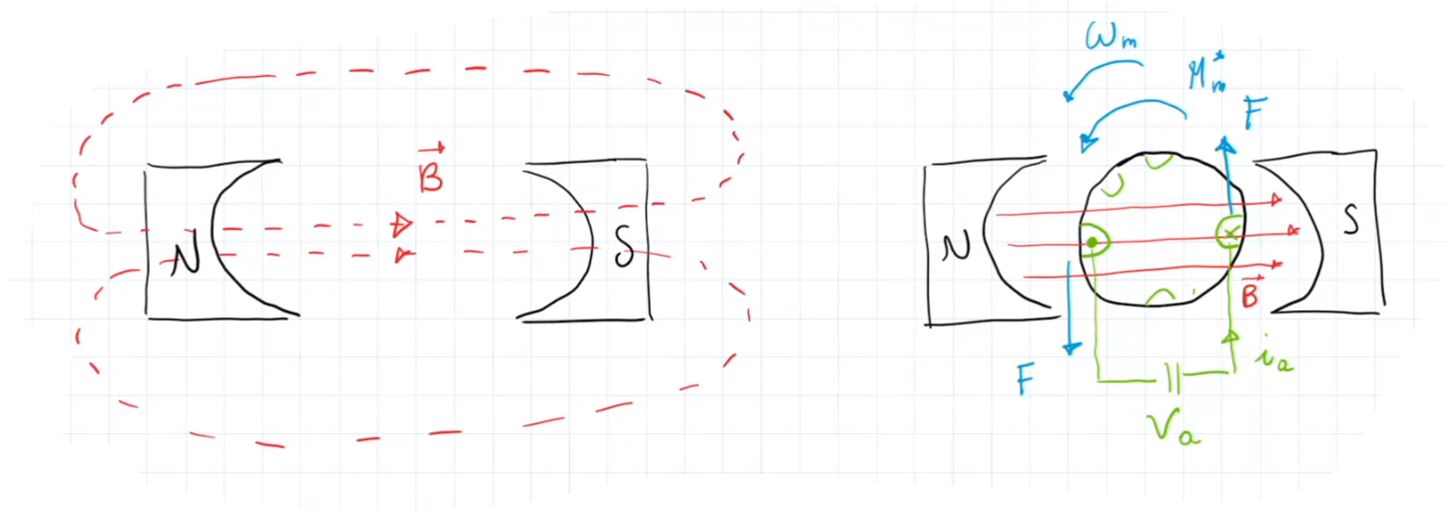 B
N
S
ωm
Mm*
F
N
S
B
F
ia
Va